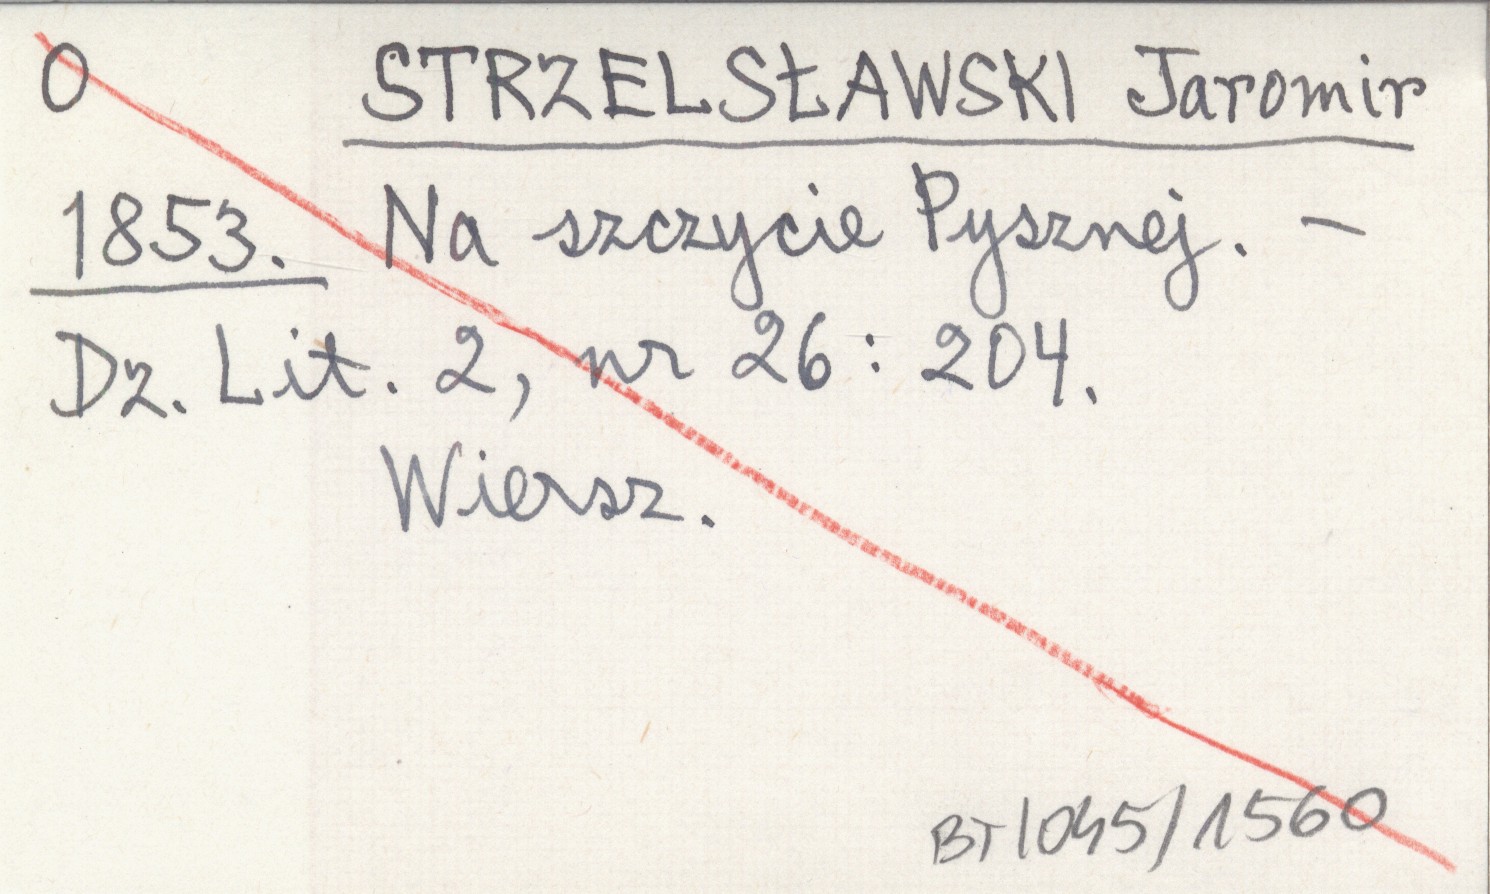 O STRZELSŁAWSKI Jaromir
1853. Na szczycie Pysznej. –
Dz. Lit. 2, nr 26 : 204.
Wiersz.
BT 1045/1560